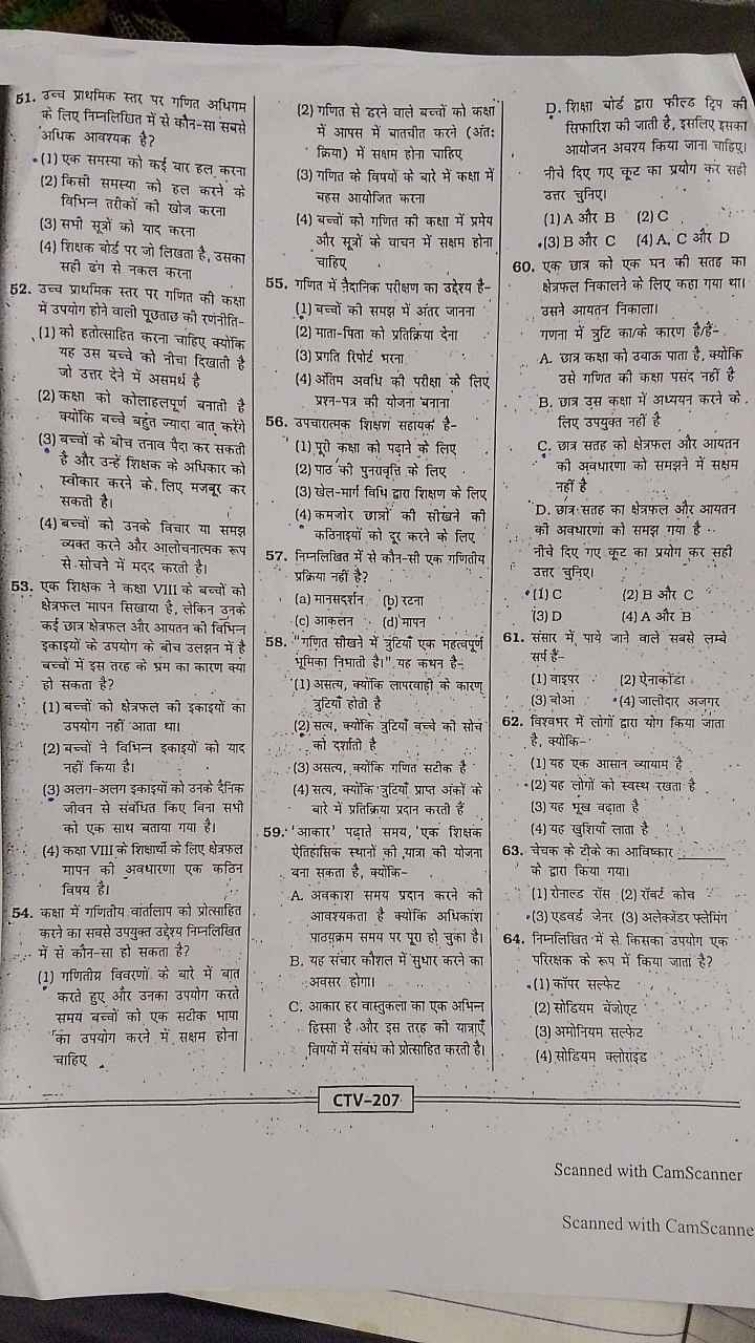 51. उच्च प्राथमिक स्तर पर गणित अधिगम
के लिए निम्नलिखित में से कौन-सा सबसे
अधिक आवश्यक है?
(1) एक समस्या को कई बार हल करना
(2) किसी समस्या को हल करने के
विभिन्न तरीकों को खोज करना
(3) सभी सूत्रों को याद करना
(4) शिक्षक बोर्ड पर जो लिखता है, उसका
सही ढंग से नकल करना
52. उच्च प्राथमिक स्तर पर गणित की कक्षा
में उपयोग होने वाली पूछताछ की रणनीति-
(1) को हतोत्साहित करना चाहिए क्योंकि
यह उस बच्चे को नीचा दिखाती है
जो उत्तर देने में असमर्थ है
(2) कक्षा को कोलाहलपूर्ण बनाती है
क्योंकि बच्चे बहुत ज्यादा बात करेंगे
(3) बच्चों के बीच तनाव पैदा कर सकती
है और उन्हें शिक्षक के अधिकार को
स्वीकार करने के लिए मजबूर कर
सकती है।
(4) बच्चों को उनके विचार या समझ
व्यक्त करने और आलोचनात्मक रूप
से सोचने में मदद करती है।
53. एक शिक्षक ने कक्षा VIII के बच्चों को
क्षेत्रफल मापन सिखाया है, लेकिन उनके
कई छात्र क्षेत्रफल और आयतन की विभिन्न
इकाइयों के उपयोग के बीच उलझन में है
बच्चों में इस तरह के भ्रम का कारण क्या
हो सकता है?
(1) बच्चों को क्षेत्रफल की इकाइयों का
उपयोग नहीं आता था।
(2) बच्चों ने विभिन्न इकाइयों को याद
नहीं किया है।
(3) अलग-अलग इकाइयों को उनके दैनिक
जीवन से संबंधित किए बिना सभी
को एक साथ बताया गया है।
(4) कक्षा VIII के शिक्षार्थी के लिए क्षेत्रफल
मापन की अवधारणा एक कठिन
विषय है।
54. कक्षा में गणितीय वार्तालाप को प्रोत्साहित
करने का सबसे उपयुक्त उद्देश्य निम्नलिखित
में से कौन-सा हो सकता है?
(1) गणितीय विवरणों के बारे में बात
करते हुए और उनका उपयोग करते
समय बच्चों को एक सटीक भाषा
का उपयोग करने में सक्षम होना
चाहिए
(2) गणित से डरने वाले बच्चों को कक्षा
में आपस में बातचीत करने (अंतः
क्रिया) में सक्षम होना चाहिए
(3) गणित के विषयों के बारे में कक्षा में
बहस आयोजित करना
(4) बच्चों को गणित की कक्षा में प्रमेय
और सूत्रों के वाचन में सक्षम होना
चाहिए
55. गणित में नैदानिक परीक्षण का उद्देश्य है-
(1) बच्चों की समझ में अंतर जानना
(2) माता-पिता को प्रतिक्रिया देना
(3) प्रगति रिपोर्ट भरना
(4) अंतिम अवधि की परीक्षा के लिए
प्रश्न-पत्र की योजना बनाना
56. उपचारात्मक शिक्षण सहायक है-
(1) पूरी कक्षा को पढ़ाने के लिए
(2) पाठ की पुनरावृत्ति के लिए
(3) खेल-मार्ग विधि द्वारा शिक्षण के लिए
(4) कमजोर छात्रों की सीखने की
कठिनाइयों को दूर करने के लिए
57. निम्नलिखित में से कौन-सी एक गणितीय
प्रक्रिया नहीं है?
(a) मानसदर्शन (b) रटना
(c) आकलन (d) मापन
58. "गणित सीखने में त्रुटियाँ एक महत्वपूर्ण
भूमिका निभाती है।" यह कथन है-
(1) असत्य, क्योंकि लापरवाही के कारण
त्रुटियाँ होती है
(2) सत्य, क्योंकि त्रुटियाँ बच्चे की सोच
को दर्शाती है
(3) असत्य, क्योंकि गणित सटीक है
(4) सत्य, क्योंकि त्रुटियाँ प्राप्त अंकों के
बारे में प्रतिक्रिया प्रदान करती हैं
59. 'आकार' पढ़ाते समय, एक शिक्षक
ऐतिहासिक स्थानों की यात्रा की योजना
बना सकता है, क्योंकि-
A. अवकाश समय प्रदान करने की
आवश्यकता है क्योंकि अधिकांश
पाठ्यक्रम समय पर पूरा हो चुका है।
B. यह संचार कौशल में सुधार करने का
अवसर होगा।
C. आकार हर वास्तुकला का एक अभिन्न
हिस्सा है और इस तरह की यात्राएँ
विषयों में संबंध को प्रोत्साहित करती है।
D. शिक्षा बोर्ड द्वारा फील्ड ट्रिप की
सिफारिश की जाती है, इसलिए इसका
आयोजन अवश्य किया जाना चाहिए।
नीचे दिए गए कूट का प्रयोग कर सही
उत्तर चुनिए।
(1) A और B (2) C
(3) B और C (4) A, C और D
60. एक छात्र को एक घन की सतह का
क्षेत्रफल निकालने के लिए कहा गया था।
उसने आयतन निकाला।
गणना में त्रुटि का/के कारण है/हैं-
A. छात्र कक्षा को उबाऊ पाता है, क्योंकि
उसे गणित की कक्षा पसंद नहीं है
B. छात्र उस कक्षा में अध्ययन करने के
लिए उपयुक्त नहीं है
C. छात्र सतह को क्षेत्रफल और आयतन
की अवधारणा को समझने में सक्षम
नहीं है
D. छात्र सतह का क्षेत्रफल और आयतन
की अवधारणा को समझ गया है
नीचे दिए गए कूट का प्रयोग कर सही
उत्तर चुनिए।
(1) C (2) B और C
(3) D (4) A और B
61. संसार में पाये जाने वाले सबसे लम्बे
सर्प हैं-
(1) वाइपर (2) ऐनाकोंडा
(3) बोआ (4) जालीदार अजगर
62. विश्वभर में लोगों द्वारा योग किया जाता
है, क्योंकि-
(1) यह एक आसान व्यायाम है
(2) यह लोगों को स्वस्थ रखता है
(3) यह भूख बढ़ाता है
(4) यह खुशियाँ लाता है
63. चेचक के टीके का आविष्कार ______
के द्वारा किया गया।
(1) रोनाल्ड रॉस (2) रॉबर्ट कोच
(3) एडवर्ड जेनर (3) अलेक्जेंडर फ्लेमिंग
64. निम्नलिखित में से किसका उपयोग एक
परिरक्षक के रूप में किया जाता है?
(1) कॉपर सल्फेट
(2) सोडियम बेंजोएट
(3) अमोनियम सल्फेट
(4) सोडियम क्लोराइड
CTV-207
Scanned with CamScanner
Scanned with CamScanne